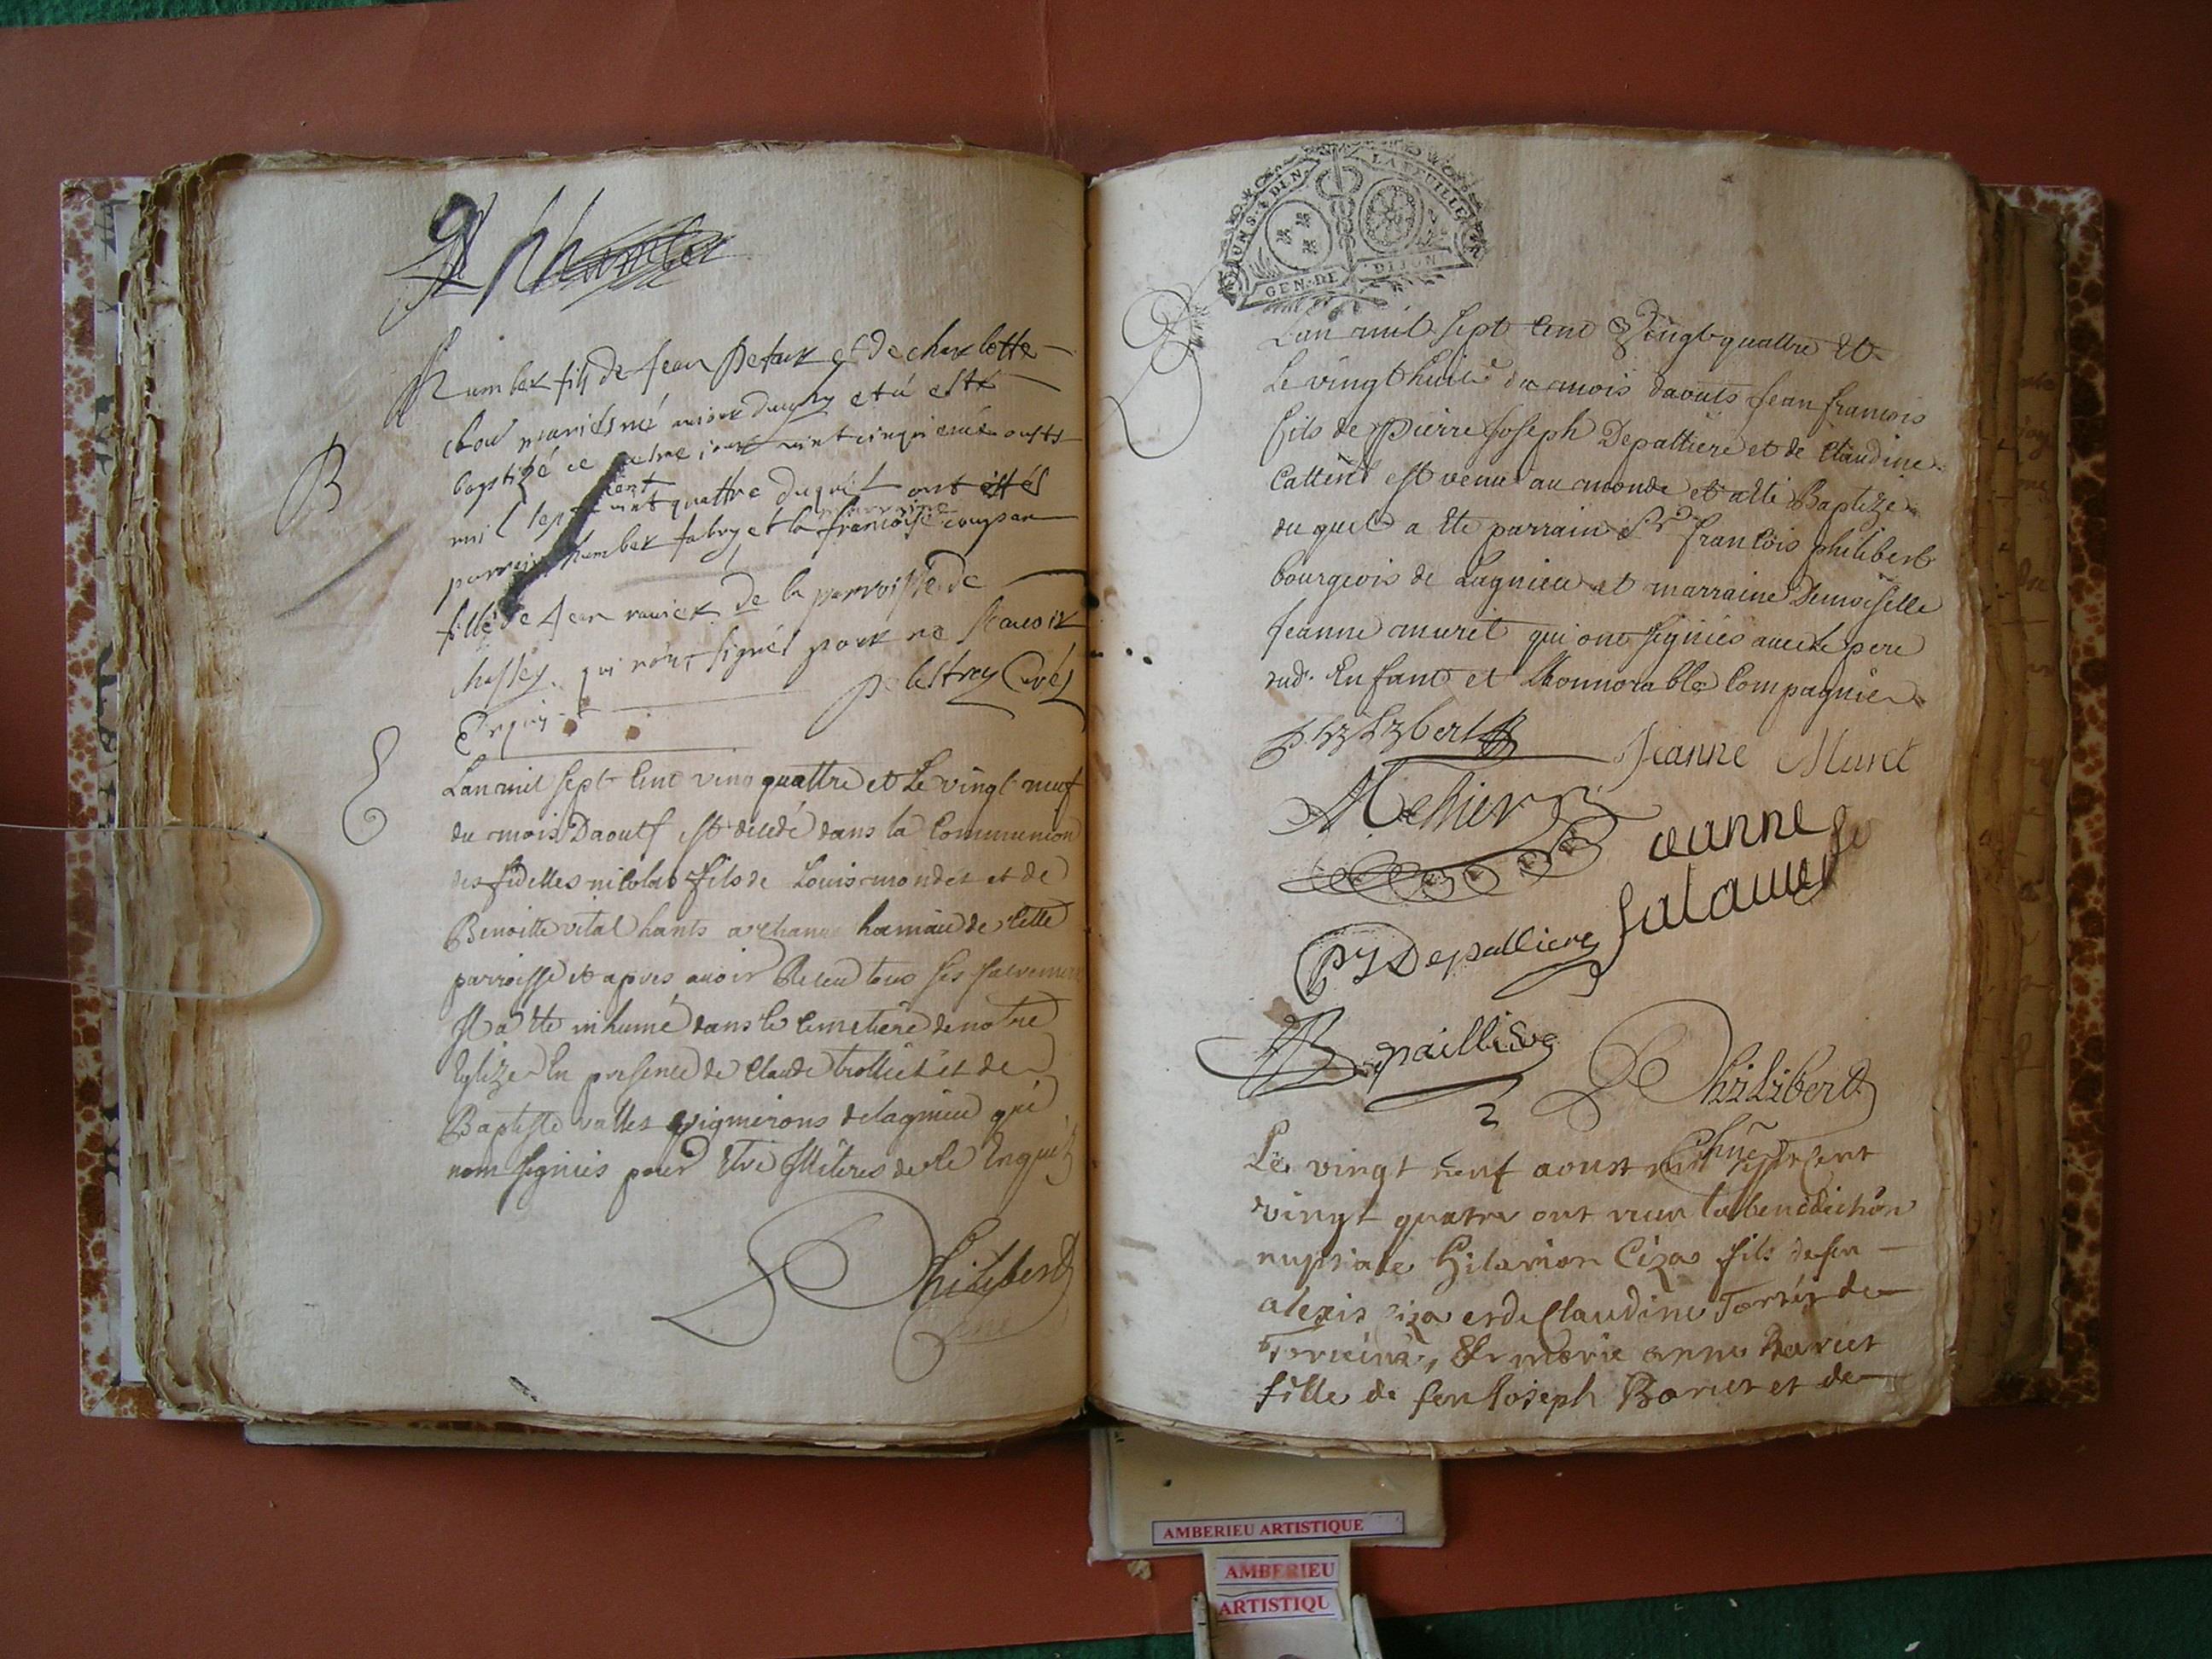 B
humber fils de Jean Defaur et de charlotte
mariés né
baptizé ce jour vint cinquieme
mil sept cent vint quattre duquel ont estés
parrain humber fabry et la marraine francoise
fille de Jean de la parroisse de
qui n'ont signés pour ne scavoir
Enquis
Lan mil sept Cent ving quattre et Le vingt neuf
du mois Daoust est decedé dans la Communion
des fidelles nicolas fils de Louis mondet et de
Benoitte vital hants a hamau de Cette
parroisse et apres avoir Receu tous ses sacremens
Il a Ete inhumé dans le Cemetiere de notre
Eglize En presence de Claude trolliet et de
Baptiste valles vignerons de lagnieu qui
nom signies pour Etre illiteres de Ce Enquis
Philibert
Curé
UNS. 4 DEN. LA FEUILLE
GEN. DE DIJON
B
Lan mil sept Cent Vingt quattre Et
Le vingt huit du mois daouts Jean francois
fils de Pierre Joseph Depalliere et de Claudine
Cattin est venu au monde et a Ete Baptize
du quel a Ete parrain Sr francois philibert
bourgeois de Lagnieu et marraine Demoiselle
Jeanne muret qui ont signies avec le pere
dud. Enfant et Lhonnorable Compagnie
Philibert
Jeanne Muret
Jeanne
PJ Depalliere
Philibert
Le vingt neuf aoust mil sept cent
vingt quatre ont receu la benediction
nuptiale hilarion Ciza fils de feu
alexis Ciza et de Claudine
Et marie anne Barret
fille de feu Joseph Barret et de
AMBERIEU ARTISTIQUE
AMBERIEU
ARTISTIQU